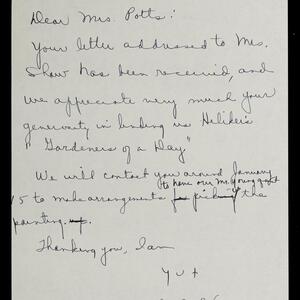 Dear Mrs. Potts:
Your letter addressed to Mrs.
Shaw has been received, and
we appreciate very much your
generosity in lending us Heliker's
"Gardeners of a Day."
We will contact you around January
to have our Mr. Young quist
15 to make arrangements for pick up the
painting up.
Thanking you, I am